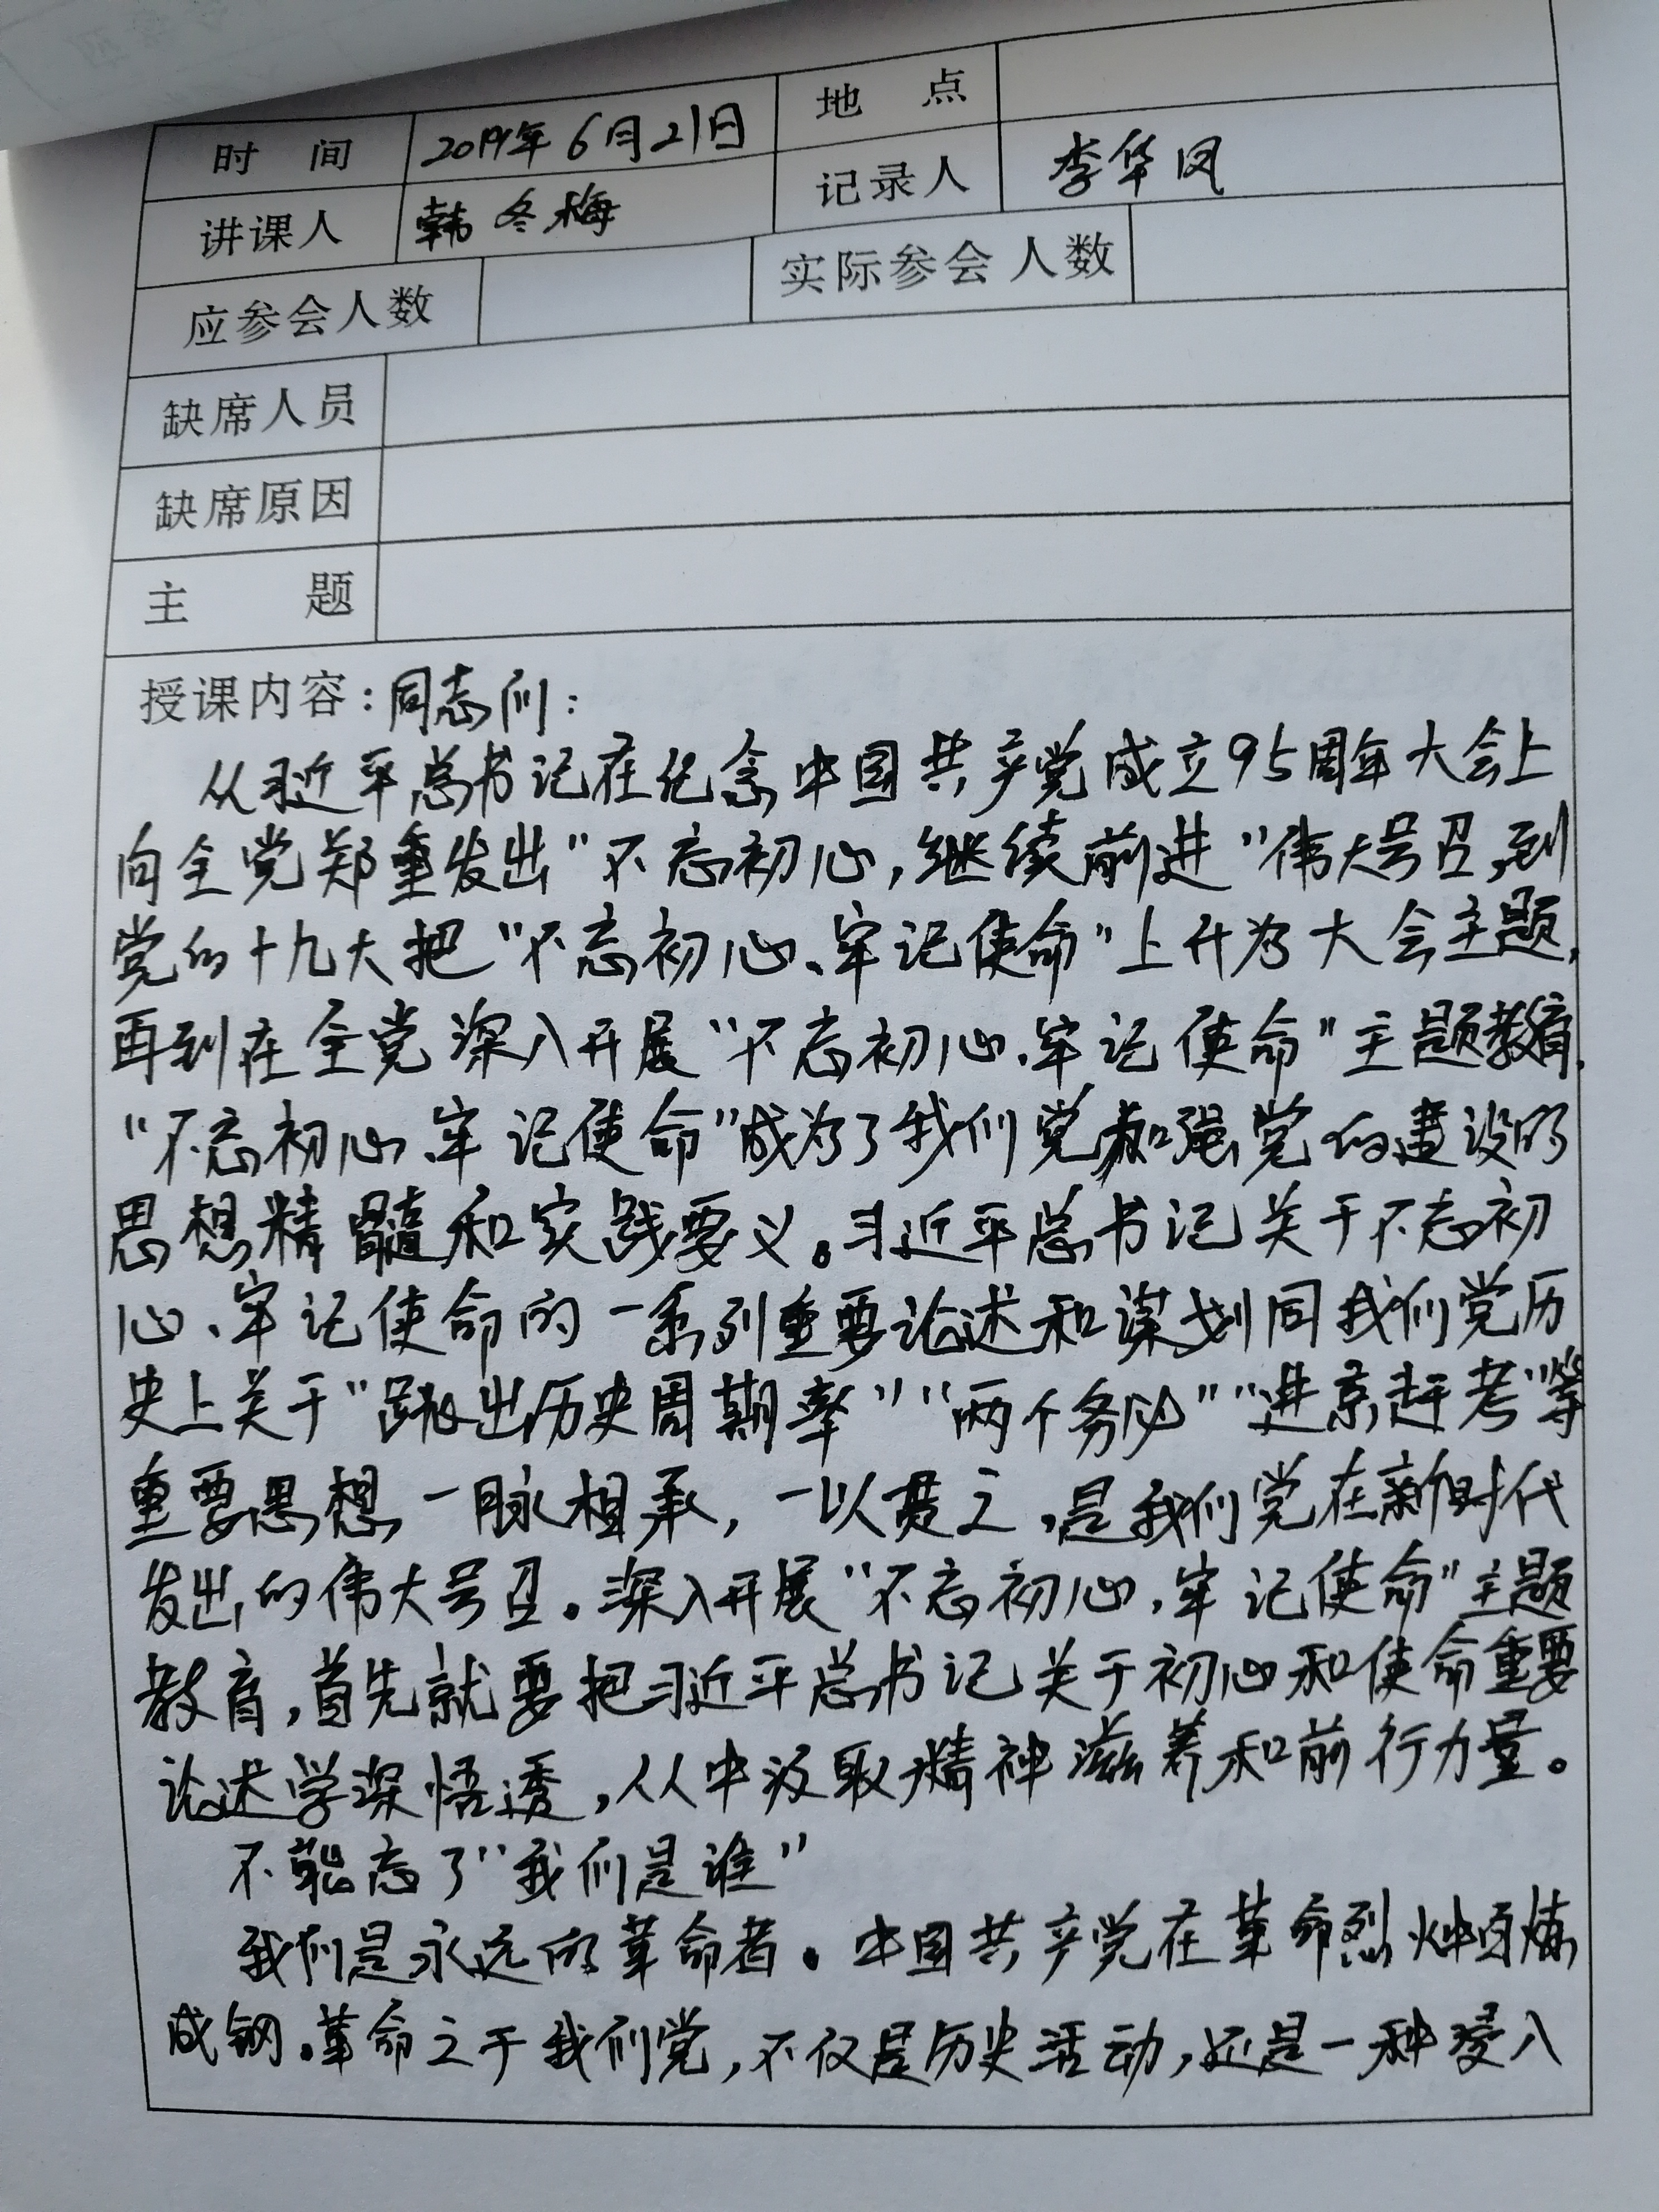 时 间 2019年6月21日 地 点
讲课人 韩冬梅 记录人 李华凤
应参会人数 实际参会人数
缺席人员
缺席原因
主 题
授课内容：同志们：
从习近平总书记在纪念中国共产党成立95周年大会上
向全党郑重发出“不忘初心，继续前进”伟大号召，到
党的十九大把“不忘初心、牢记使命”上升为大会主题，
再到在全党深入开展“不忘初心、牢记使命”主题教育，
“不忘初心、牢记使命”成为了我们党加强党的建设的
思想精髓和实践要义。习近平总书记关于不忘初
心、牢记使命的一系列重要论述和谋划同我们党历
史上关于“跳出历史周期率”“两个务必”“进京赶考”等
重要思想一脉相承，一以贯之，是我们党在新时代
发出的伟大号召。深入开展“不忘初心，牢记使命”主题
教育，首先就要把习近平总书记关于初心和使命重要
论述学深悟透，从中汲取精神滋养和前行力量。
不能忘了“我们是谁”
我们是永远的革命者。中国共产党在革命烈火中百炼
成钢。革命之于我们党，不仅是历史活动，还是一种浸入